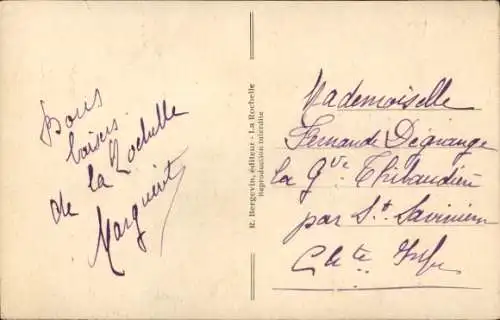 Bons
baisers
de la Rochelle
Marguerit
R. Bergevin, éditeur - La Rochelle
Reproduction interdite
Mademoiselle
Fernande Dégrange
La Gve Thibaudière
par St Savinien
Chte Infre